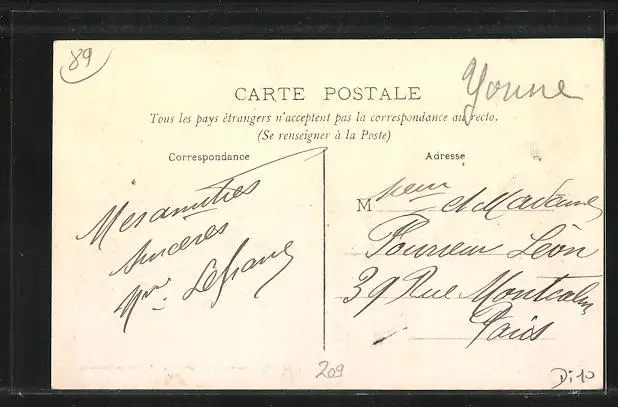 89
Yonne
CARTE POSTALE
Tous les pays étrangers n'acceptent pas la correspondance au recto.
(Se renseigner à la Poste)
Correspondance
Adresse
Mes amitiés
sincères
Mme Lefranc
Msieur et Madame
Léon
39 Rue Montcalm
Paris
209
Di 10